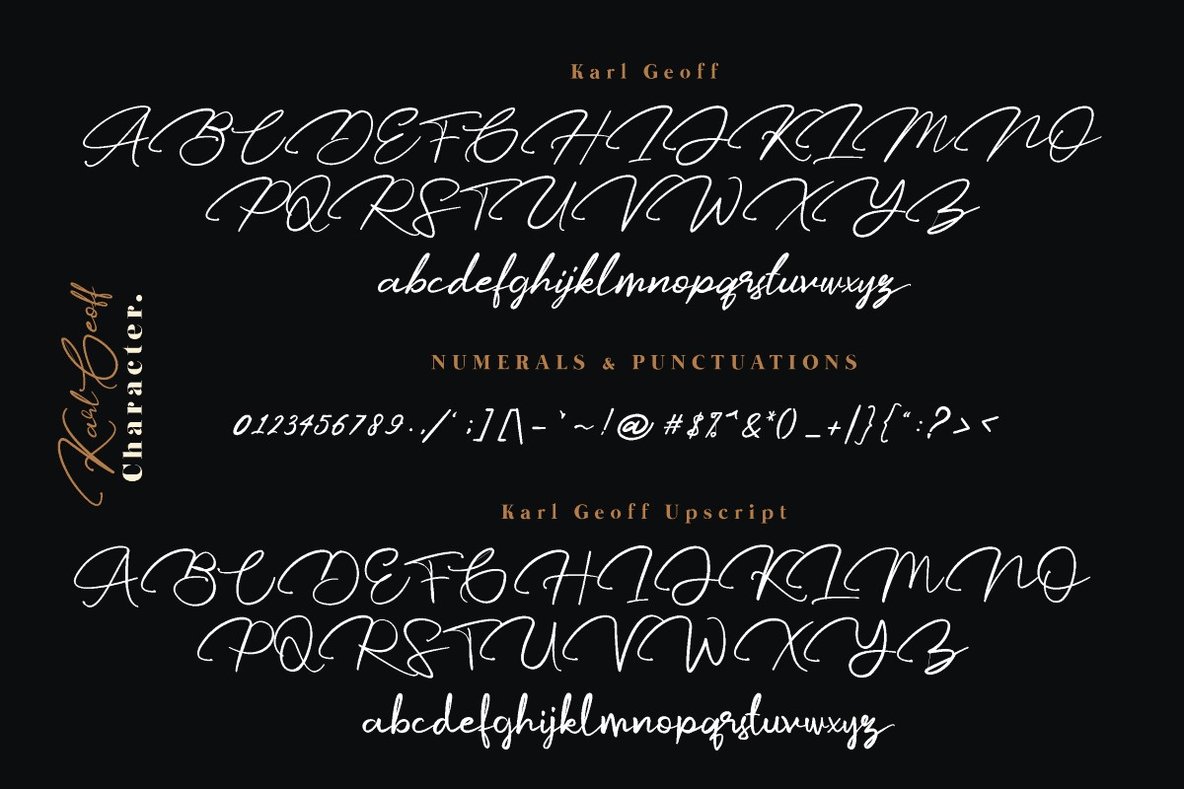 Karl Geoff
ABCDEFGHIJKLMNO
PQRSTUVWXYZ
abcdefghijklmnopqrstuvwxyz
Karl Geoff
Character.
NUMERALS & PUNCTUATIONS
0123456789.,/‘;][\-`~!@#$%^&*()_+|}{“:?><
Karl Geoff Upscript
ABCDEFGHIJKLMNO
PQRSTUVWXYZ
abcdefghijklmnopqrstuvwxyz